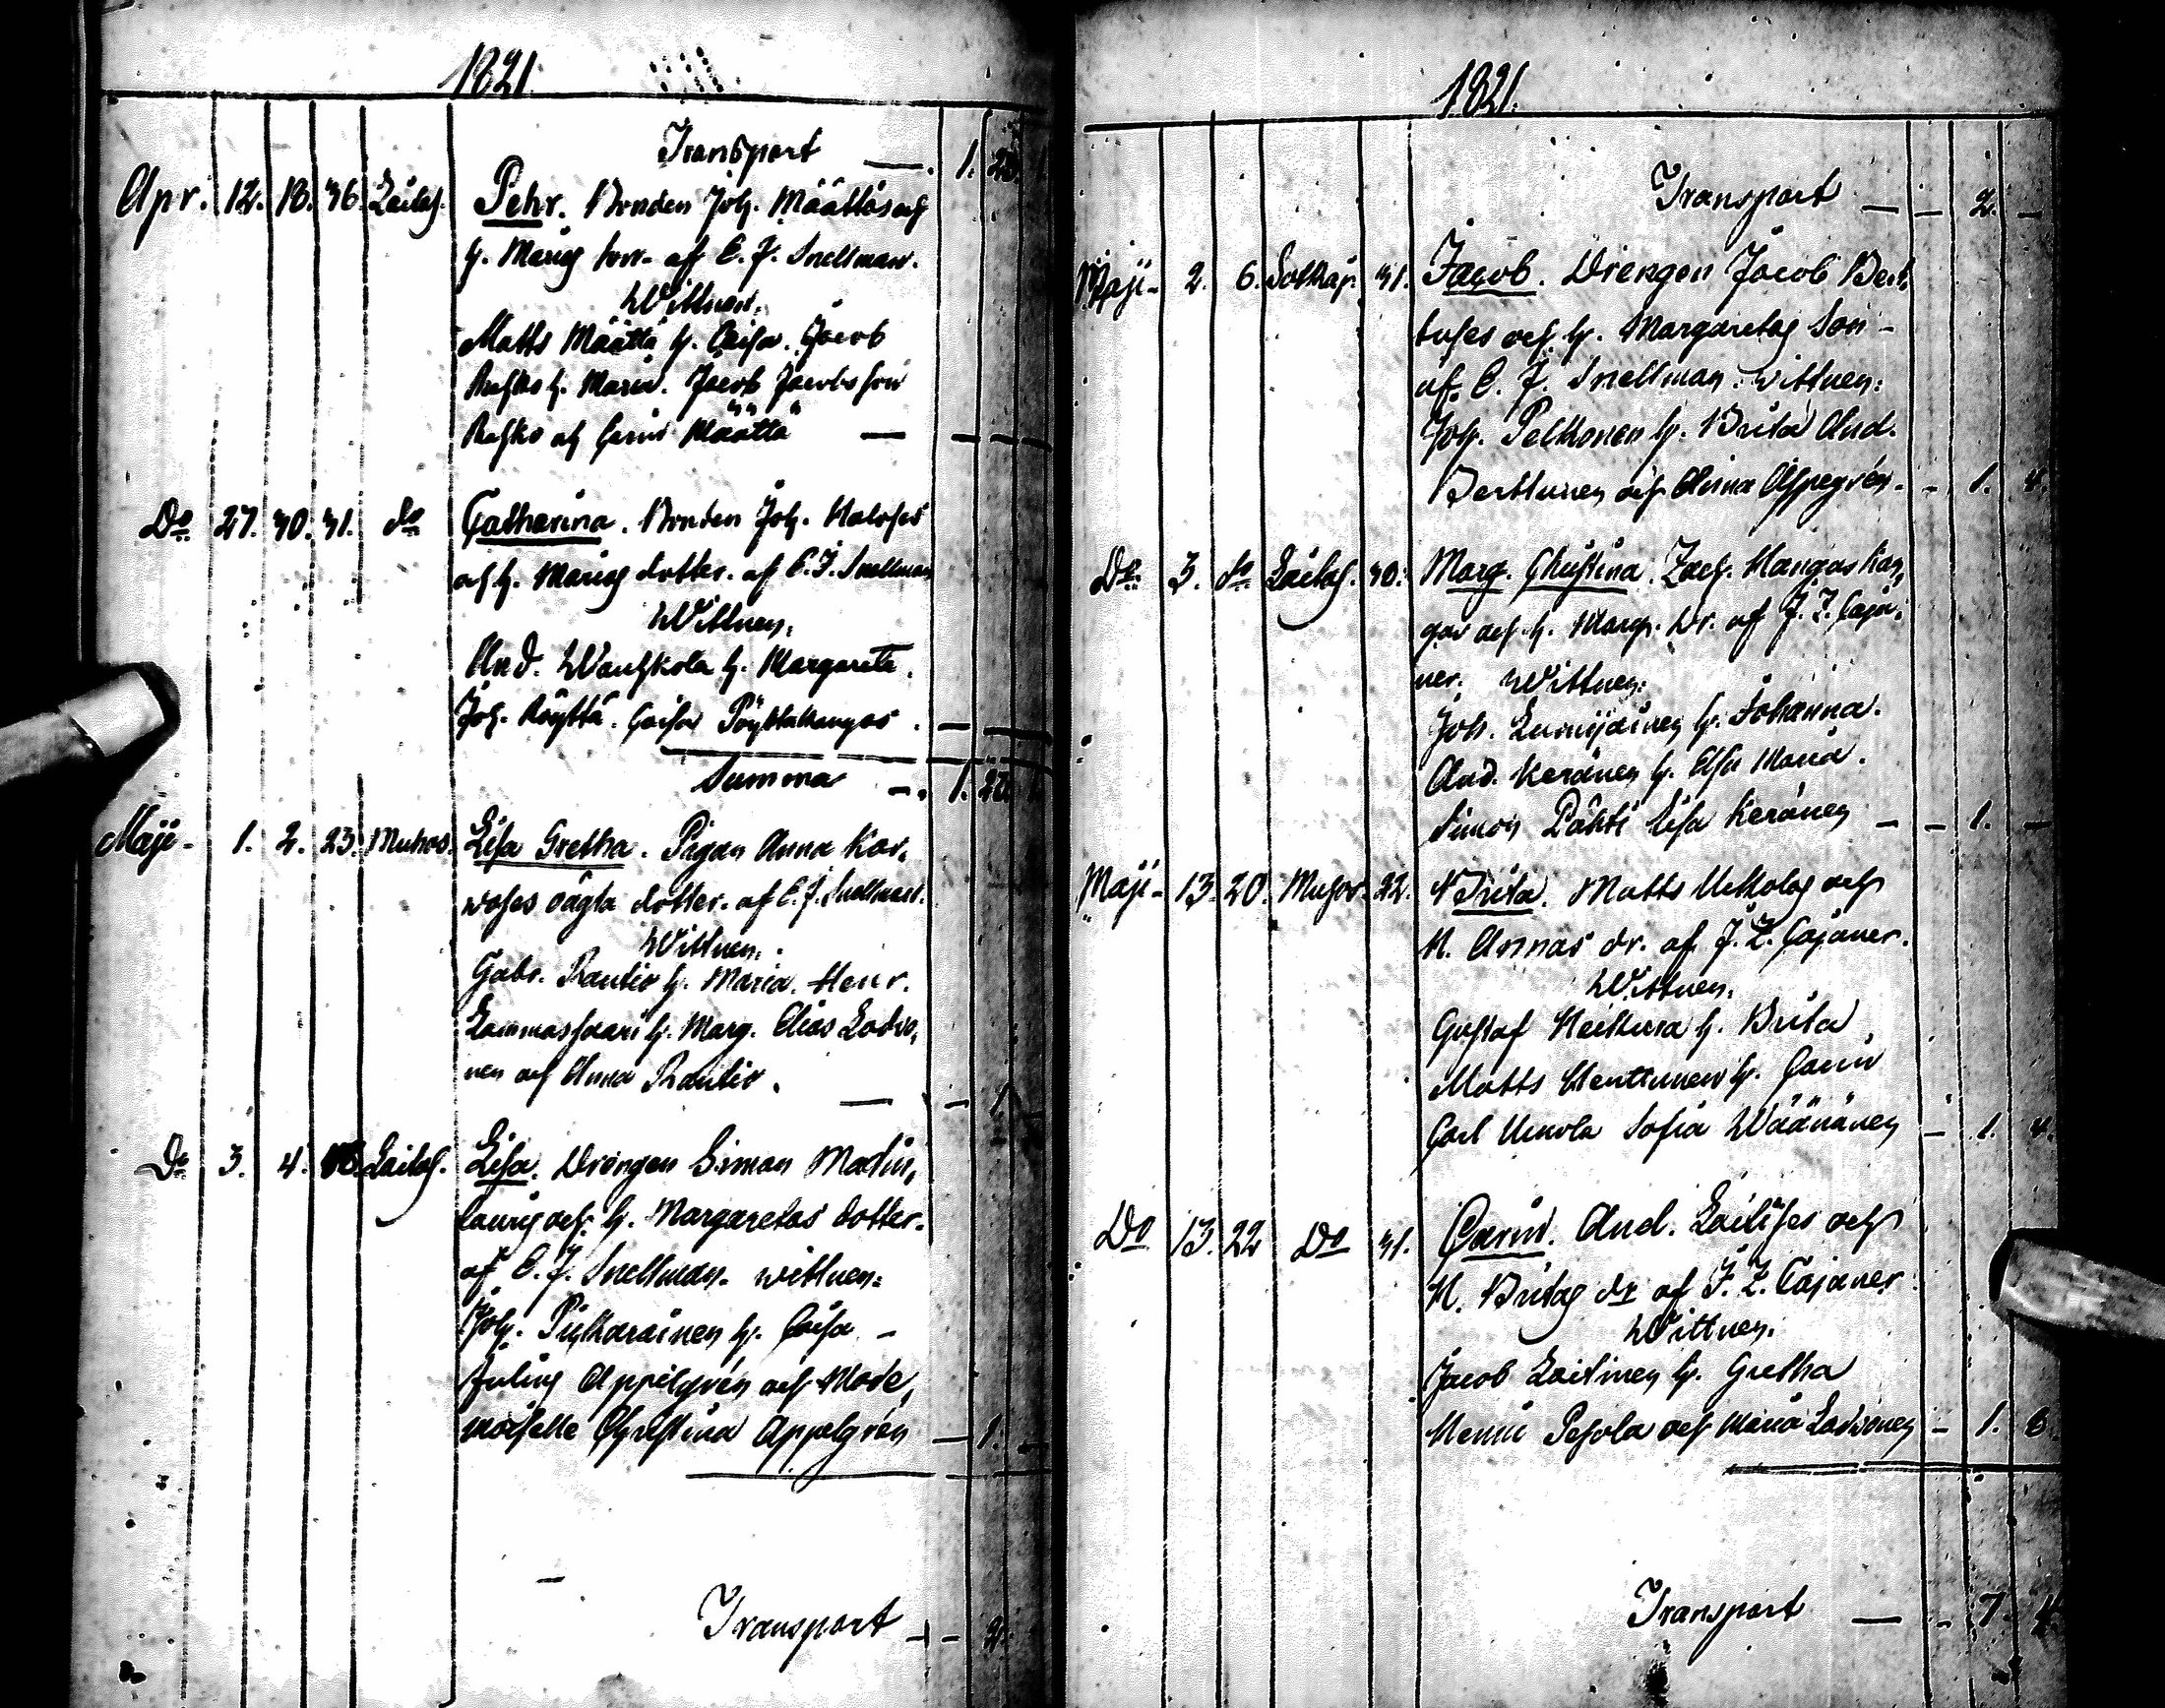 1821.
Transport — 1. 28.
Apr. 12. 18. 36. Laitas. Pehr. Bonden Joh. Määttäs och
h. Marias son. af E. J. Snellman.
Wittnen:
Matts Määttä h. Caisa. Jacob
h. Maria. Jacob Jacobsson
och Carin Määttä —
Do 27. 30. 31. do Catharina. Bonden Joh.
och h. Marias dotter. af E. J. Snellman
Wittnen:
And. h. Margareta.
Joh. Röyttä. Caisa Pöyktakangas. —
Summa — 1.
Maji - 1. 2. 23. Muhos. Lisa Gretha. Pigan Anna Kar,
woses oägta dotter. af E. J. Snellman.
Wittnen:
Gabr. Rautio h. Maria. Henr.
Lammassaari h. Marg. Elias Lodvo,
nen och Anna Rautio. — 1.
Do 3. 4. Laitas. Lisa. Drängen Simon Matin,
lauris och h. Margaretas dotter.
af E. J. Snellman. wittnen:
Joh. Pulkarainen h. Caisa —
Julius Appelgrén och Made,
moiselle Christina Appelgrén — 1.
Transport — 2.
1821.
Transport — 2. —
Maji - 2. 6. Sotkaj. 31. Jacob. Drengen Jacob Bert,
tuses och h. Margaretas Son -
af E. J. Snellman. Wittnen:
Joh. Pelkonen h. Brita And.
Berttunen och Anna Appegrén. - 1. 4.
Do 3. do Laitas. 30. Marg. Christina. Zach. Mangas Kan,
gas och h. Marg. Dr. af J. Z. Caja,
ner. Wittnen:
Joh. Lumijäinen h. Johanna.
And. Keränen h. Elsa Maria.
Simon Pähti Lisa Keränen — 1. —
Maji - 13. 20. Muhos. 22. Brita. Matts Ukkolas och
H. Annas dr. af J. Z. Cajaner.
Wittnen:
Gustaf h. Brita
Matts h. Carin
Carl Ukkola Sofia Wäänänen — 1. 4.
Do 13. 22 Do 31. Carin. And. Laitises och
H. Britas dr af J. Z. Cajaner
Wittnen:
Jacob Laitinen h. Gretha
Henric Pesola och Maria Lodvonen - 1. 6.
Transport — 7. 4.